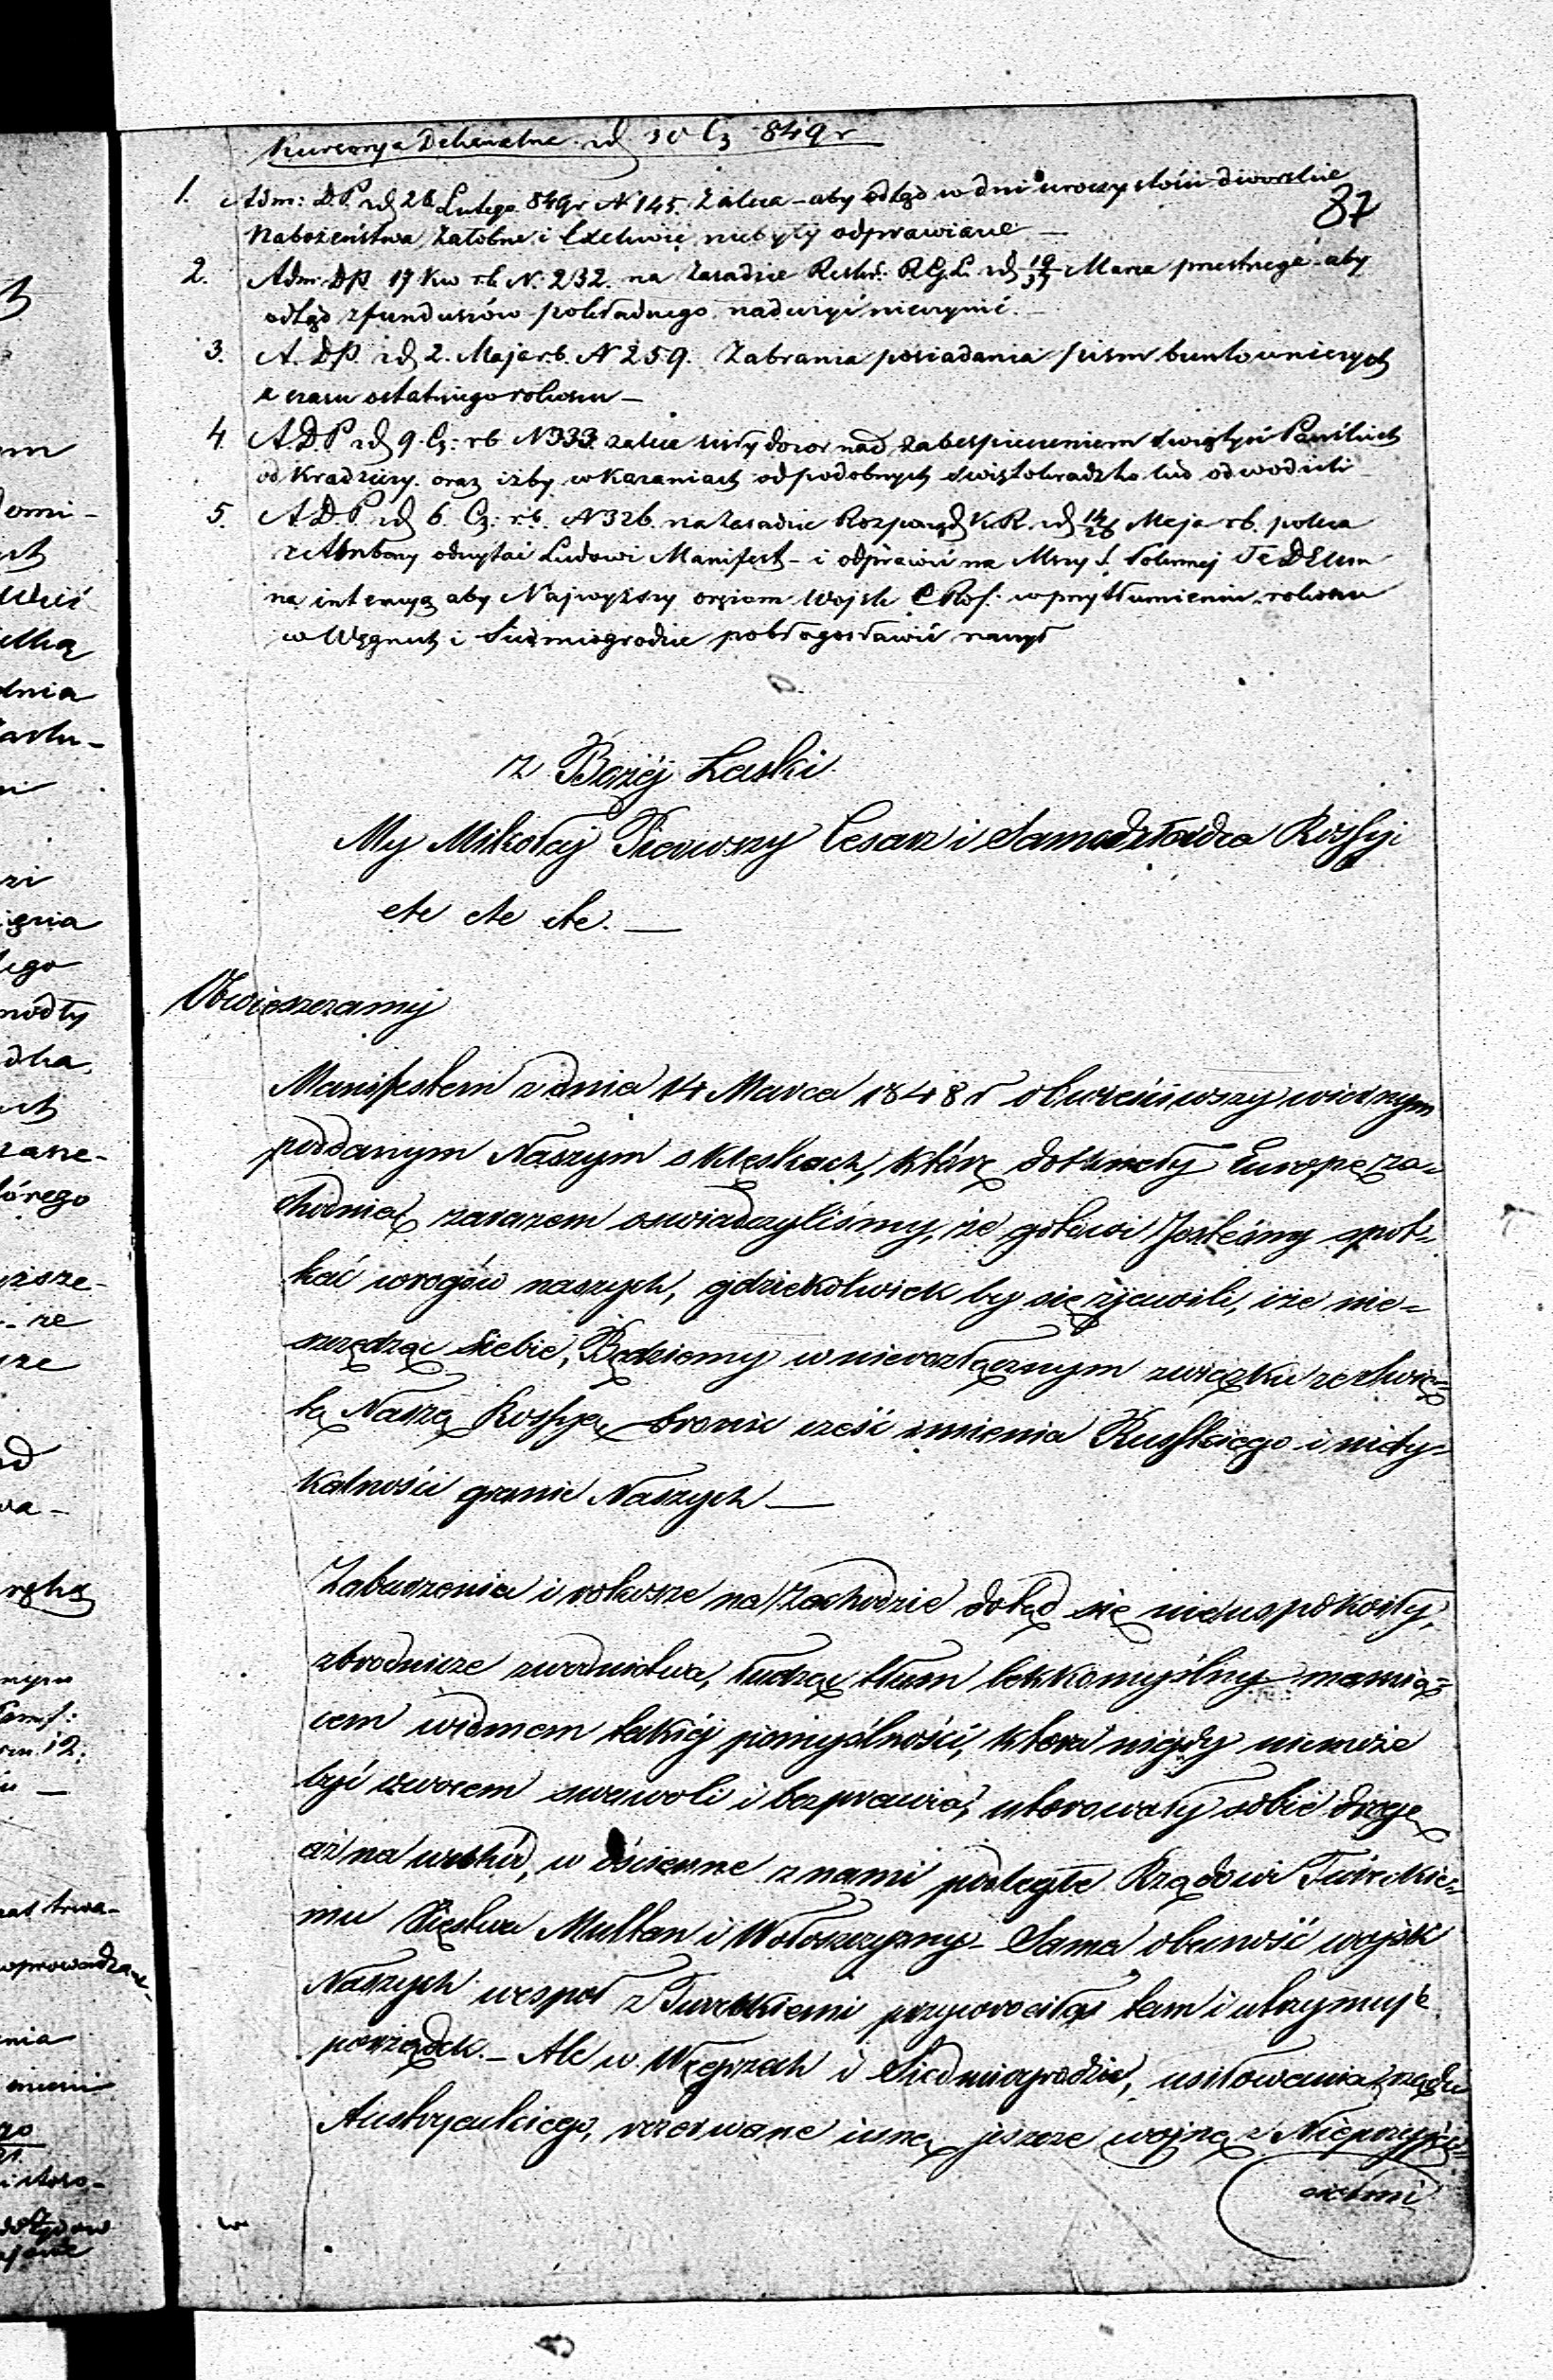 Kurenrya Dekanalna zd 30 Cz 849 r
87
1. Adm: D.P. zd 28 Lutego 849 r N 145. Zaleca - aby odtąd w dni uroczystości dworskie
Nabożeństwa Żałobne i Exekwie niebyły odprawiane —
2. Adm. DP. 17 Kw rb N. 232. na Zasadzie R.G.L. zd 19/31 Marca przestrzega - aby
odtąd z funduszów pokładnego nadwyżi nieczynić. —
3. A. DP. zd 2. Maja rb. N 259. Zabrania posiadania pism buntowniczych
z czasu ostatniego rokoszu —
4. A.D.P zd 9. Cz: rb N 333. zaleca ścisły dozór nad Zabezpieczeniem Świątyń Pańskich
od Kradzieży. oraz iżby w Kazaniach od podobnych Świętokradztw lud odwodzili
5. A.D.P. zd 6. Cz: rb. N 326. na Zasadzie Rozporząd K.R. zd 14/26 Maja rb. poleca
z Ambony odczytać Ludowi Manifest - i odprawić na Mszy Ś. Solennej Te DEum
na intencyą aby Najwyższy orężom Wojsk C Ros. w przytłumieniu rokoszu
w Węgrzech i Siedmiogrodzie pobłogosławić raczył
z Bożej Łaski
My Mikołaj Pierwszy Cesarz i Samodzierżca Rossyi
etc etc etc. —
Obwieszczamy
Manifestem z dnia 14 Marca 1848 r obwieściwszy wiernym
poddanym Naszym o klęskach, które dotknęły Europę za-
chodnią zarazem oświadczyliśmy, że gotowi Jesteśmy spot-
kać wrogów naszych, gdziekolwiek by się zjawili, i że nie-
szczędząc Siebie, Będziemy w nierozłącznym związku ze Świę-
tą Naszą Rossyą bronić cześć imienia Russkiego i niety-
kalności granic Naszych —
Zaburzenia i rokosze na Zachodzie dotąd się nieuspokoiły,
zbrodnicze zwodnictwa, łudząc tłum lekkomyślny mamią-
cem widmem takiej pomyślności, która nigdy niemoże
być owocem swawoli i bezprawia, utorowały sobie drogę
aż na wschód, w ościenne z nami podległe Rządowi Tureckie-
mu Xięstwa Multan i Wołoszczyzny - Sama obecność wojsk
Naszych wespół z Tureckiemi przywróciła tam i utrzymuje
porządek. - Ale w Węgrzech i Siedmiogrodzie, usiłowania rządu
Austryackiego, rozerwane inną jeszcze wojną z Nieprzyja-
ciołmi